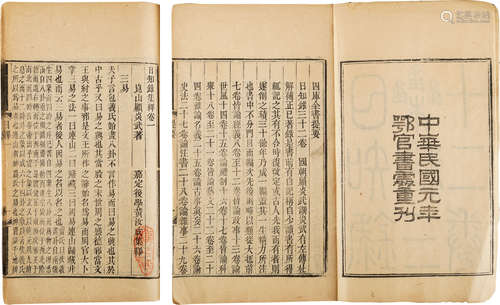 中華民國元年
鄂官書處重刊
四庫全書提要
日知錄三十二卷 國朝顧炎武撰炎武有左傳杜
解補正已著錄是書前有自記稱自少讀書有所得輒
記之其有不合時復改定或古人先我而有者則
遂削之積三十餘年乃成一編蓋其一生精力所注
也書中不分門目而編次先後則略以類從大抵前
七卷皆論經義八卷至十二卷皆論政事十三卷論
世風十四卷十五卷論禮制十六卷十七卷皆論科
舉十八卷至二十一卷皆論藝文二十二卷至二十
四卷雜論名義二十五卷論古事真妄二十六卷論
史法二十七卷論注書二十八卷論雜事二十九卷
日知錄集釋卷一
崑山顧炎武著 嘉定後學黃汝成集釋
三易
夫子言包羲氏始畫八卦不言作易而曰易之興也其于
中古乎又曰易之興也其當殷之末世周之盛德邪當文
王與紂之事邪是文王所作之辭始名爲易而周官大卜
掌三易之法一曰連山二曰歸藏三曰周易連山歸藏非
易也而云三易者後人因易之名以名之也